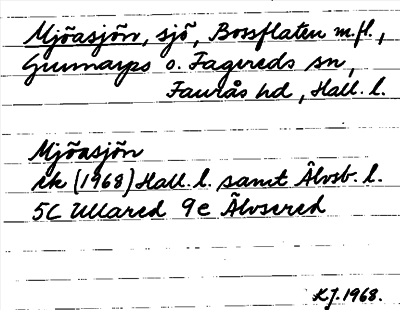 Mjöasjön, sjö, Bossflaten m.fl.,
Gunnarps o. Fagereds sn,
Faurås hd, Hall. l.
Mjöasjön
ek (1968) Hall. l. samt Älvsb. l.
5C Ullared 9e Älvsered
KJ. 1968.